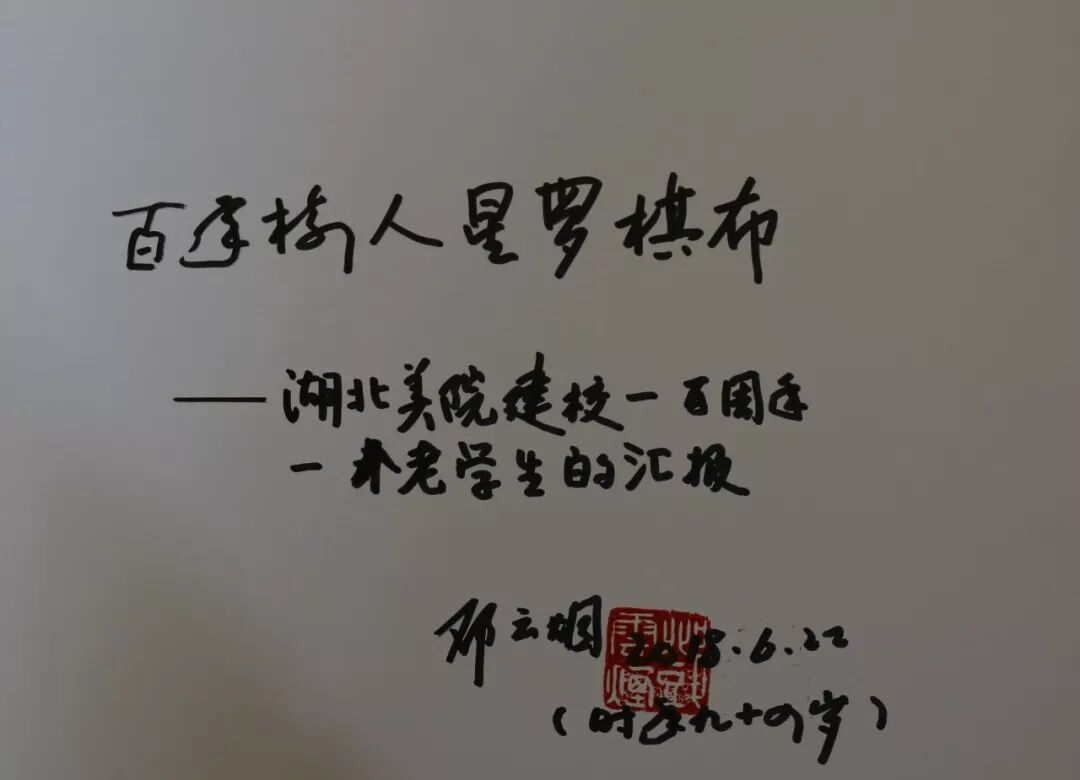 百年树人星罗棋布
——湖北美院建校一百周年
一个老学生的汇报
云烟 2018.6.22
(时年九十四岁)